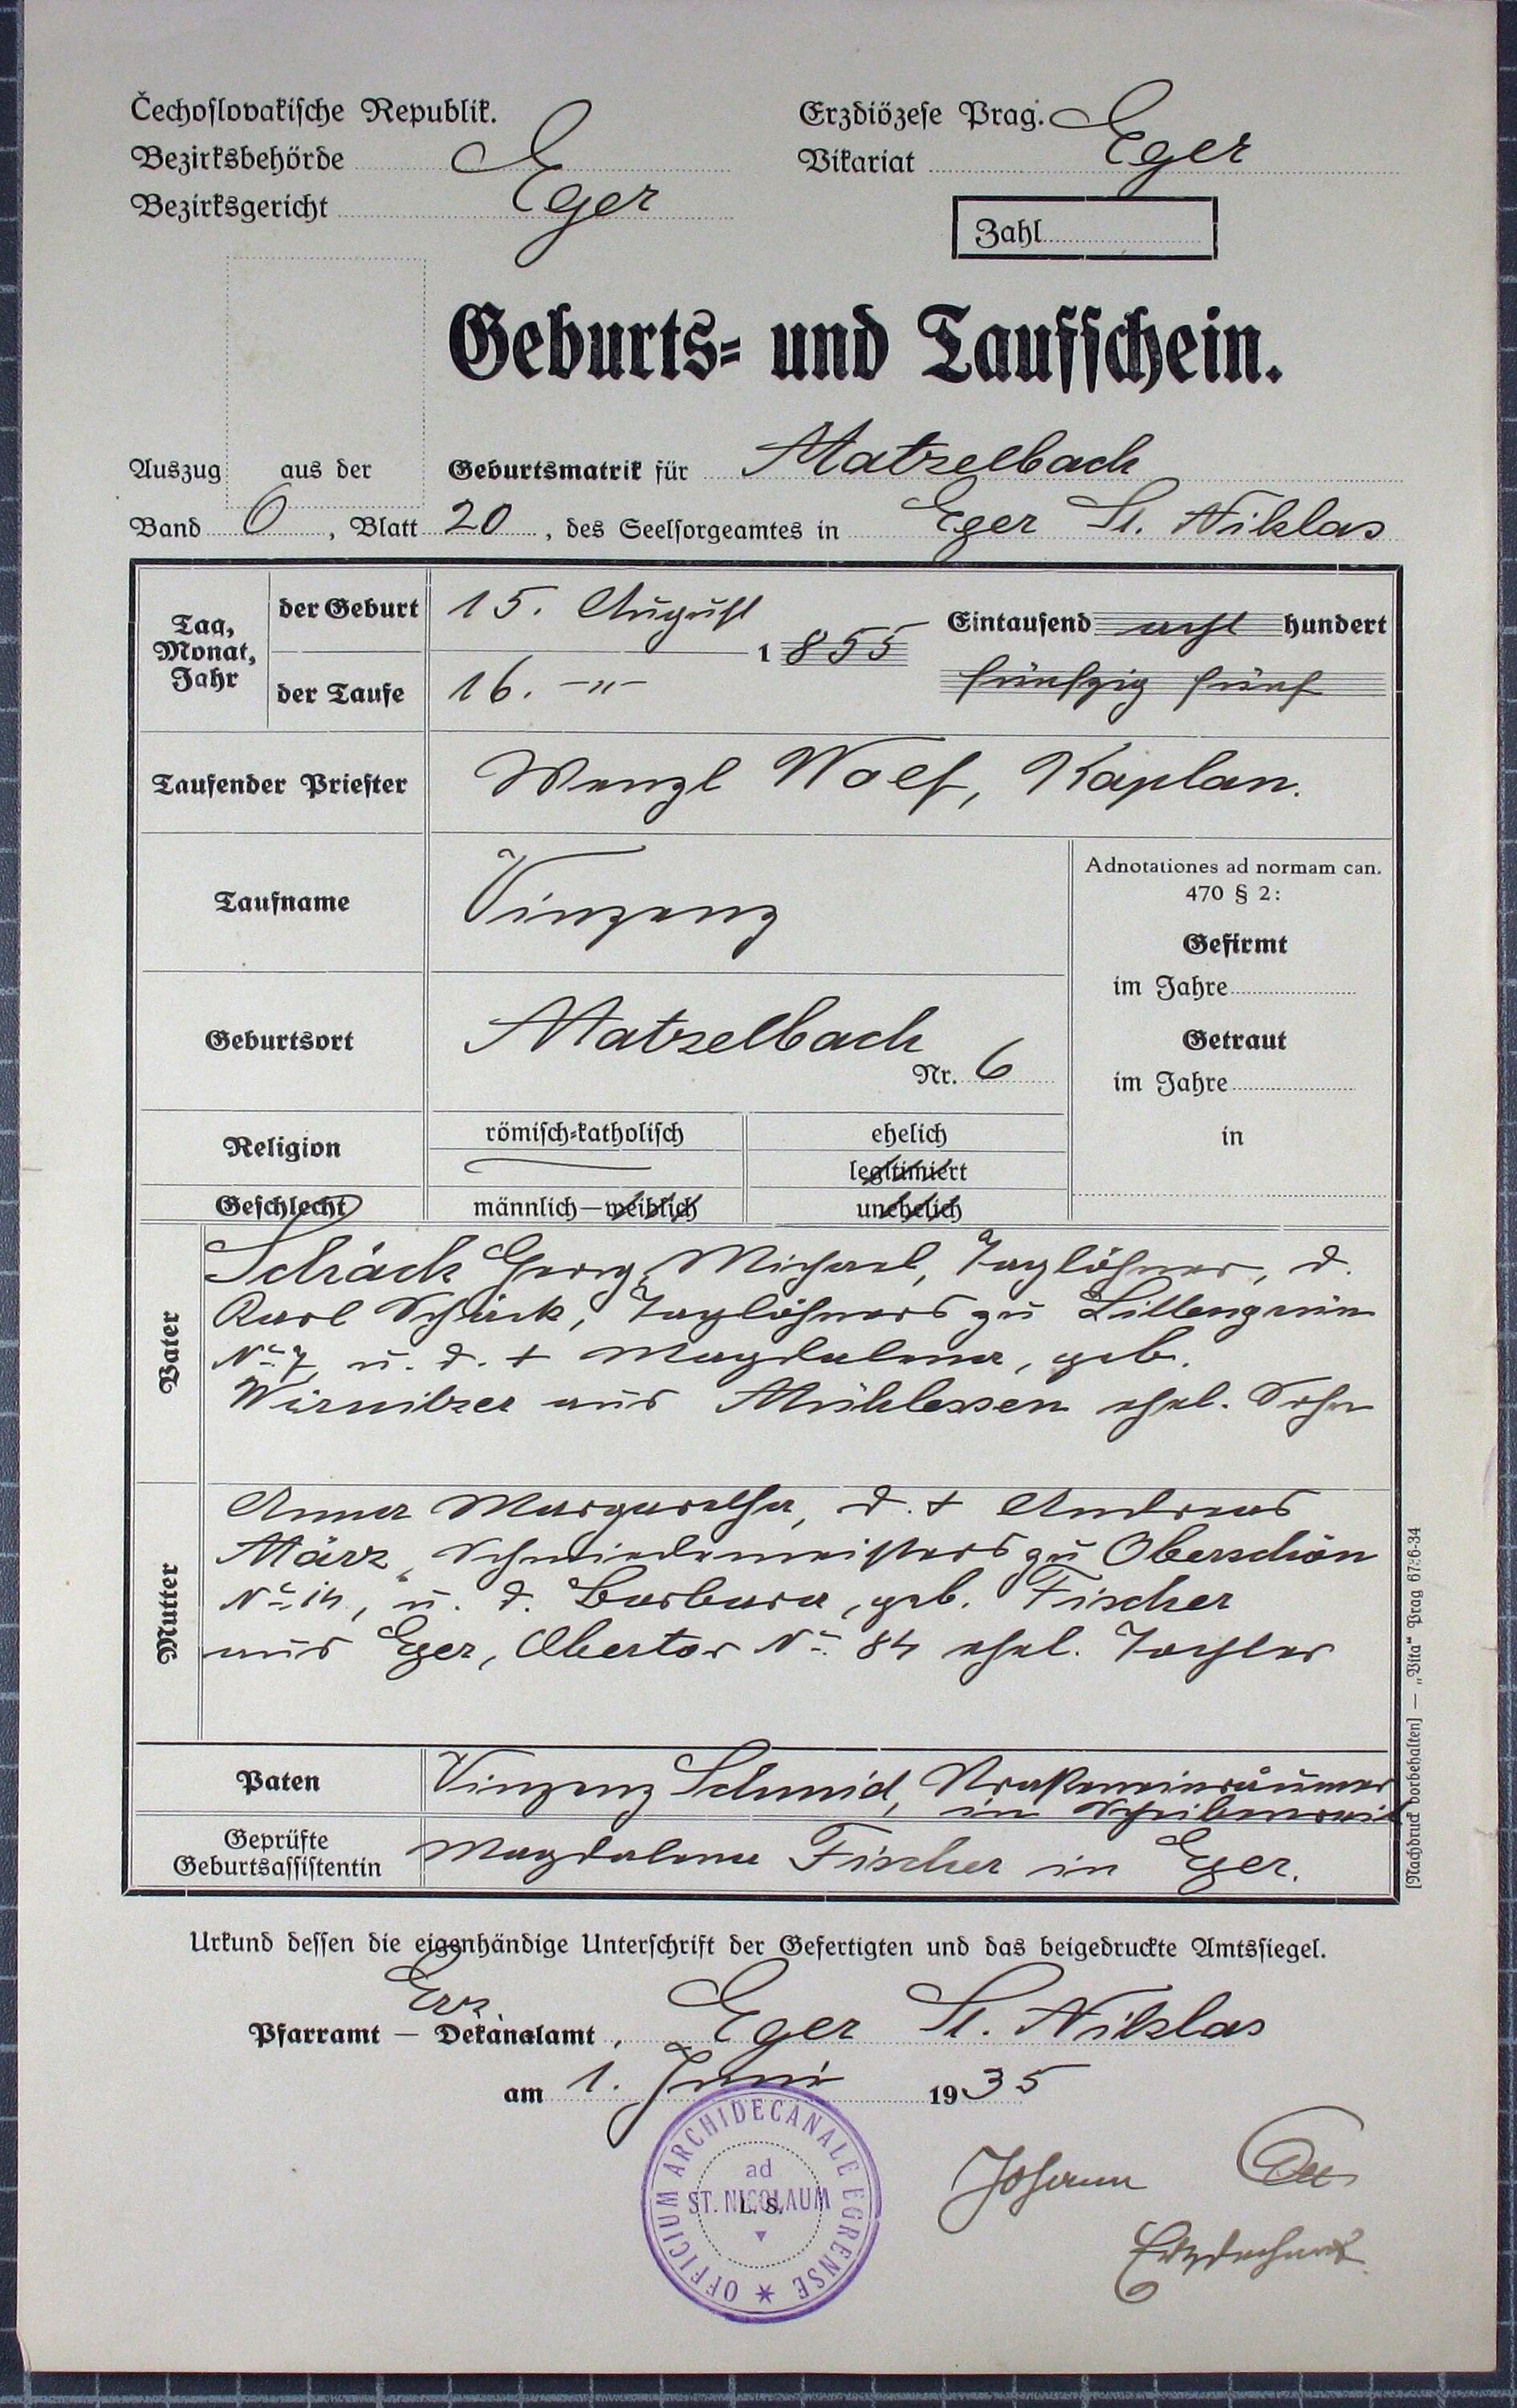 Čechoslovakische Republik.
Erzdiözese Prag.
Bezirksbehörde Eger
Vikariat Eger
Bezirksgericht
Zahl
Geburts- und Taufschein.
Auszug aus der Geburtsmatrik für Matzelbach
Band O, Blatt 20, des Seelsorgeamtes in Eger St. Niklas
Tag, Monat, Jahr
der Geburt 15. August
1855 Eintausend acht hundert
fünfzig fünf
der Taufe 16. -"-
Taufender Priester Wenzl Wolf, Kaplan.
Taufname Vinzenz
Adnotationes ad normam can.
470 § 2:
Gefirmt
im Jahre
Geburtsort Matzelbach
Nr. 6
Getraut
im Jahre
in
Religion römisch-katholisch ehelich
legitimiert
Geschlecht männlich—weiblich unehelich
Vater
Schäck Georg Michael, Taglöhner, d.
Karl Schäck, Taglöhners zu Littengrün
No 7, u. d. + Magdalena, geb.
Wirnitzer aus Mühlessen ehel. Sohn
Mutter
Anna Margaretha, d. + Andreas
März, Schmiedemeisters zu Oberschön
No 14, u. d. Barbara, geb. Fischer
aus Eger, Obertor No 84 ehel. Tochter
Paten Vinzenz Schmid, Straßeneinräumer
in
Geprüfte
Geburtsassistentin Magdalena Fischer in Eger.
[Nachdruck vorbehalten] — „Vita“ Prag 677:6-34
Urkund dessen die eigenhändige Unterschrift der Gefertigten und das beigedruckte Amtssiegel.
Erz
Pfarramt — Dekanalamt, Eger St. Niklas
am 1. Juni 1935
OFFICIUM ARCHIDECANALE EGRENSE
ad
ST. NICOLAUM
L. S.
Johann
Erzdechant